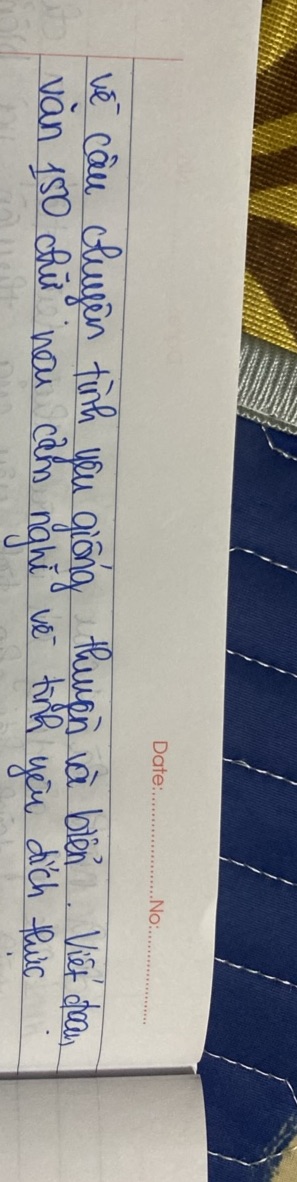 Date:....................No:....................
về câu chuyện tình yêu giống thuyền và biển. Viết đoạn
văn 150 chữ nêu cảm nghĩ về tình yêu đích thực.